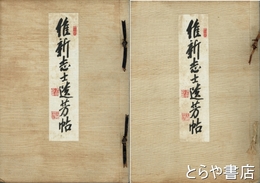 維新志士遺芳帖
維新志士遺芳帖
とらや書店